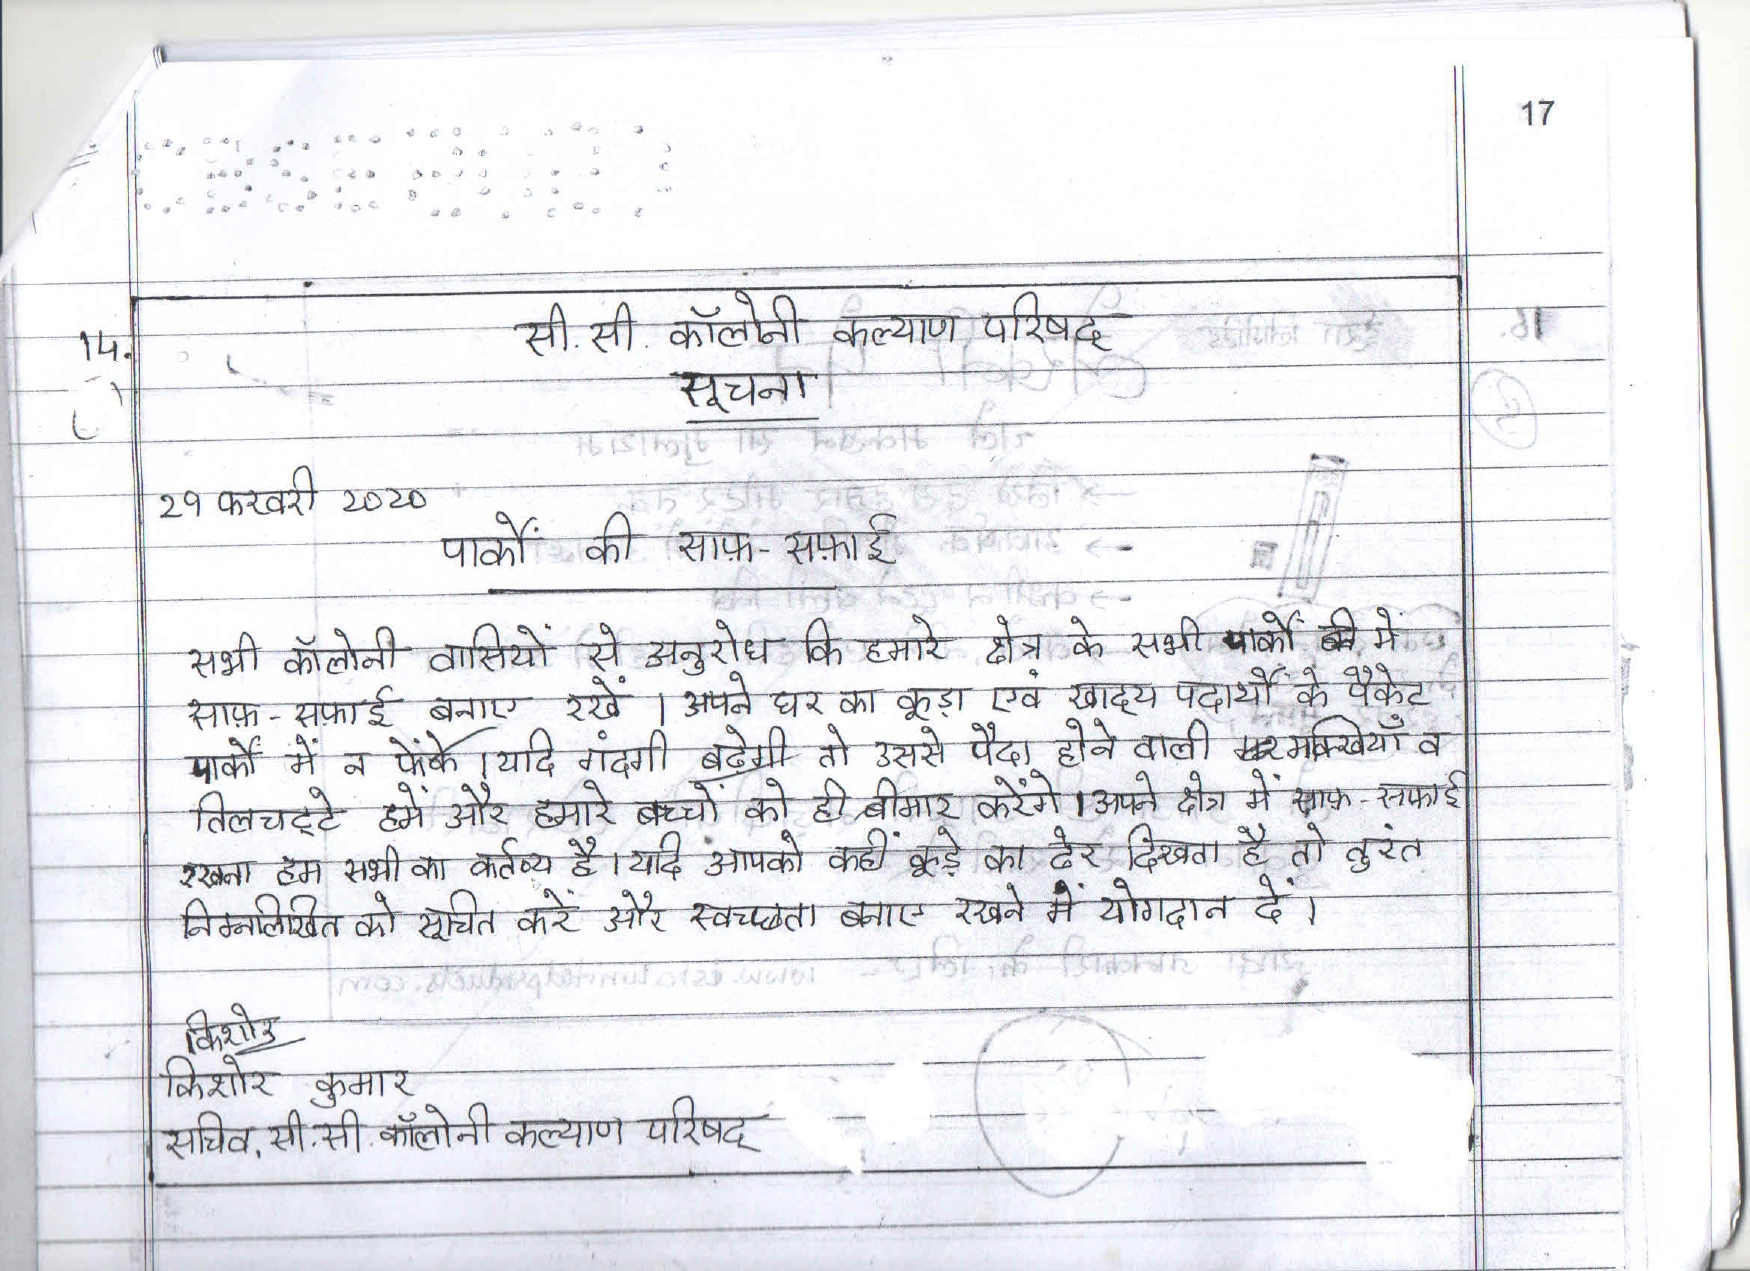 17
14.
सी.सी. कॉलोनी कल्याण परिषद्
सूचना
29 फरवरी 2020
पार्कों की साफ़-सफ़ाई
सभी कॉलोनी वासियों से अनुरोध कि हमारे क्षेत्र के सभी पार्कों में
साफ़-सफ़ाई बनाए रखें । अपने घर का कूड़ा एवं खाद्य पदार्थों के पैकेट
पार्कों में न फेंके । यदि गंदगी बढ़ेगी तो उससे पैदा होने वाली मक्खियाँ व
तिलचट्टे हमें और हमारे बच्चों को ही बीमार करेंगे । अपने क्षेत्र में साफ़-सफाई
रखना हम सभी का कर्तव्य है । यदि आपको कहीं कूड़े का ढेर दिखता है तो तुरंत
निम्नलिखित को सूचित करें और स्वच्छता बनाए रखने में योगदान दें ।
किशोर
किशोर कुमार
सचिव, सी.सी. कॉलोनी कल्याण परिषद्